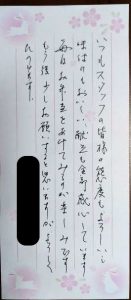 いつもスタッフの皆様の態度もよろしいし
味はけもおいしい、献立も全部感心しています
毎日お弁当をあけてみるのが楽しみです
もう後少しお願いすると思いますがよろしく
たのみます。